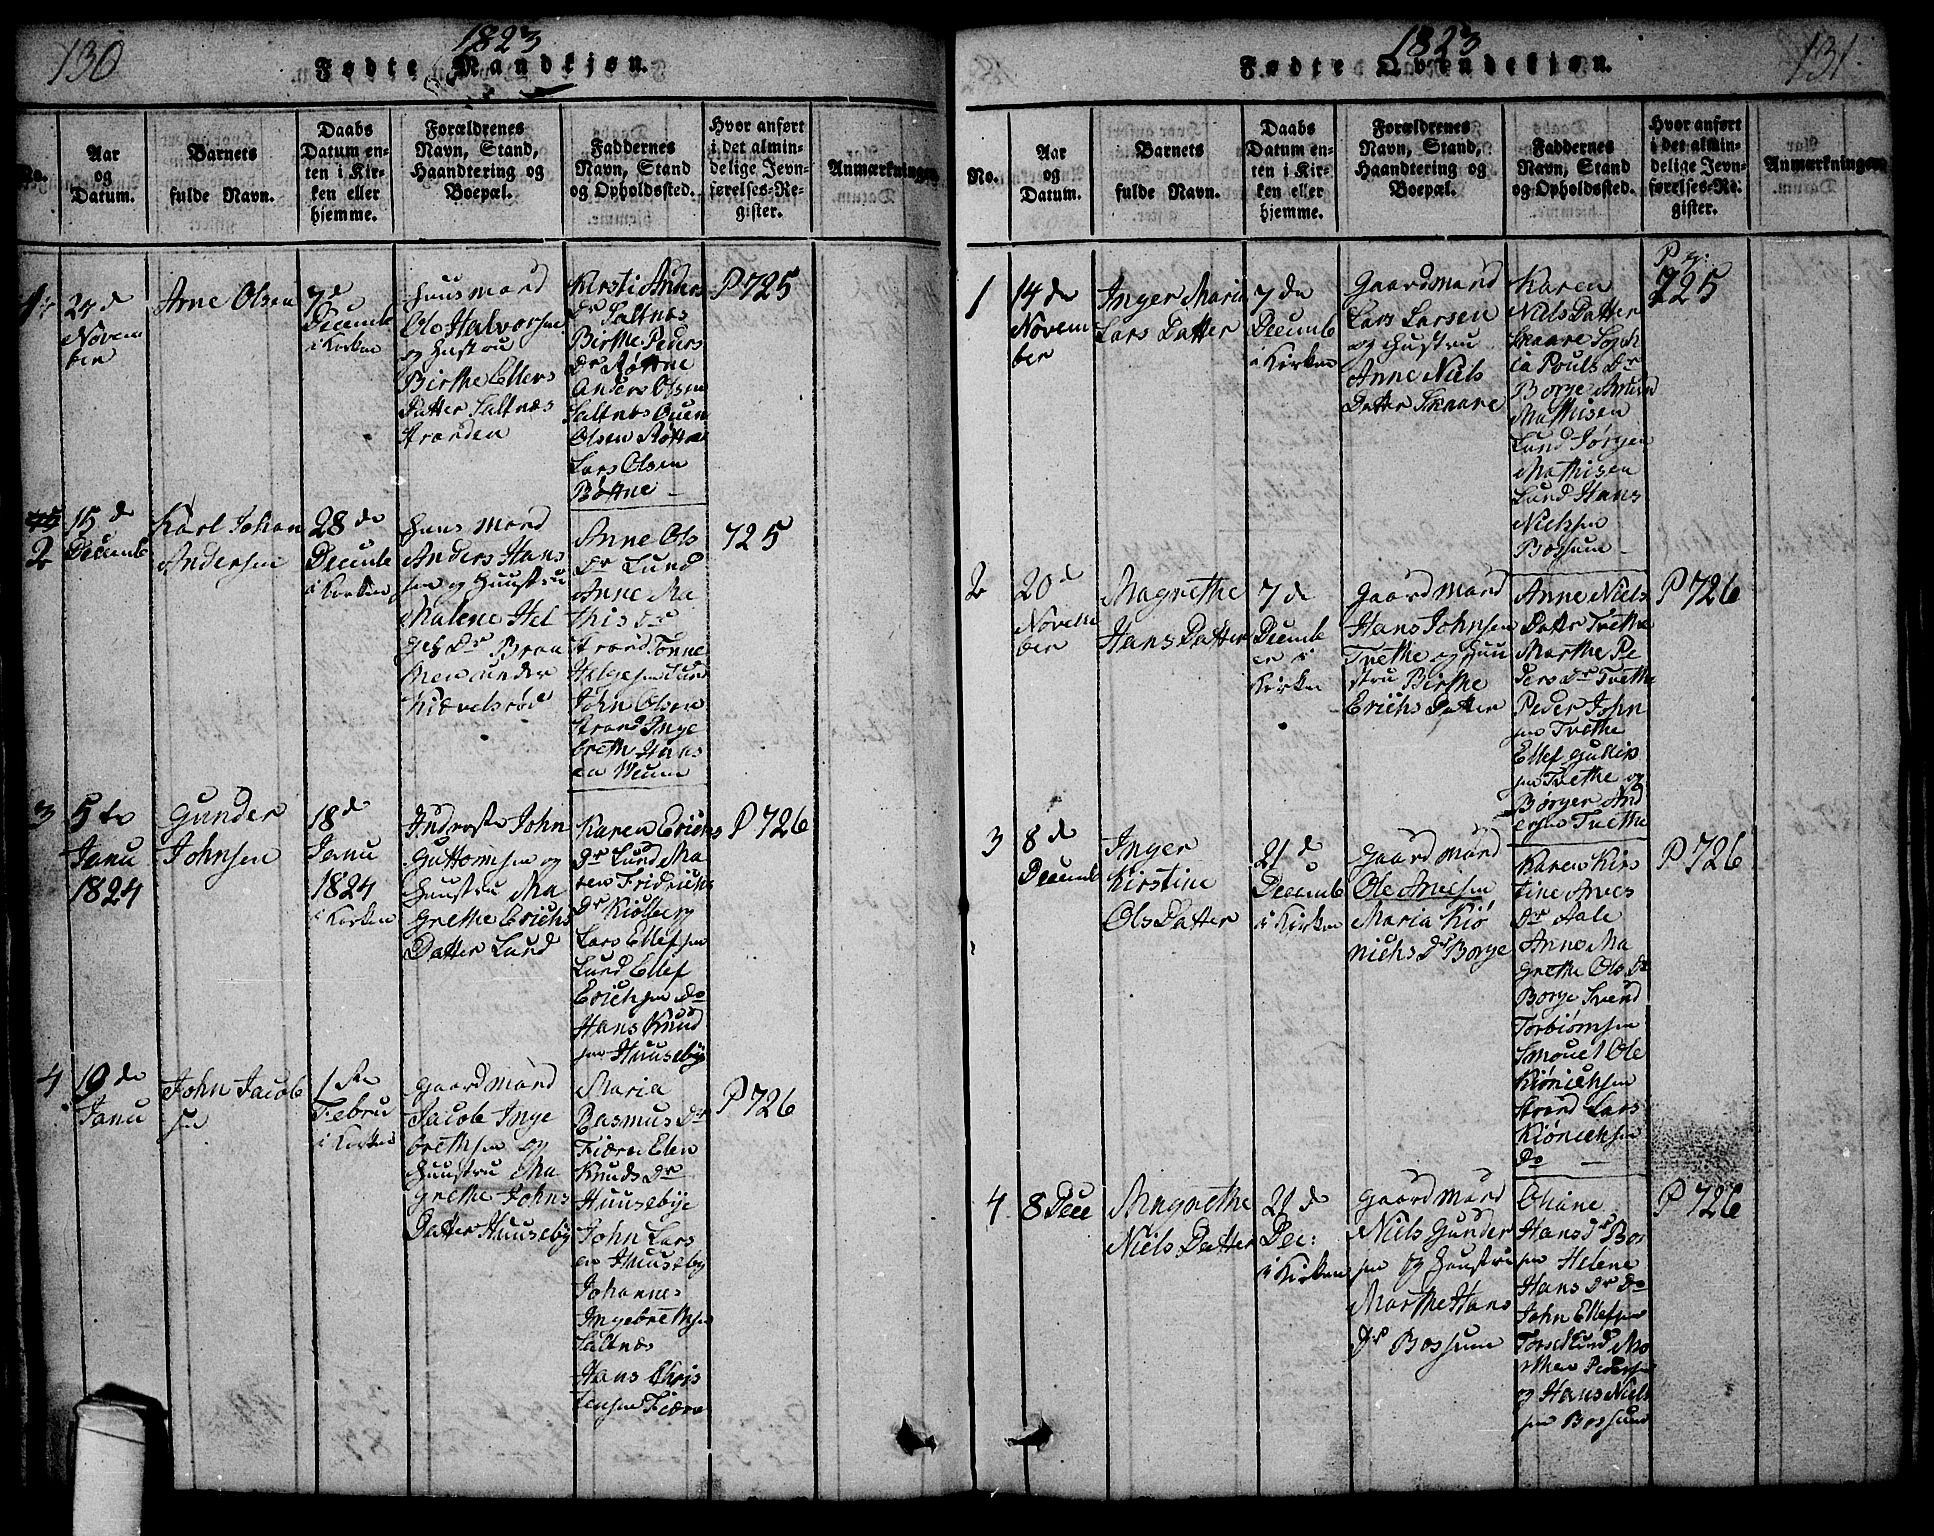 130
1823
Fødte Mandkjøn.
No.
Aar
og
Datum.
Barnets
fulde Navn.
Daabs
Datum en-
ten i Kir-
ken eller
hjemme.
Forældrenes
Navn, Stand,
Haandtering og
Boepæl.
Faddernes
Navn, Stand
og Opholdssted.
Hvor anført
i det almin-
delige Jevn-
førelses-Re-
gister.
Anmærkninger
24 de
Novem
ber
Arne Olsen
7 de
Decemb
i Kirken
Huusmand
Ole Halvorsen
og Hustru
Birthe Ellefs
Datter Saltnæs
stranden
Kirsti Anders
Dr Saltnæs
Birthe Peders
Dr Røttne
Anders Olsen
Saltnæs
Olsen Røttne
Lars Olsen
Røttne
P 725
2
15 de
Decemb
Karl Johan
Andersen
28 de
Decemb
i Kirken
Huusmand
Anders Han
sen og Huustru
Malene Hel
ges Dr Bra
under
Kiævelsrød
Anne Ols
Dr Lund
Anne Ma
this Dr
strand Tønne
Helgesen Lund
John Olsen
strand Inge
breth Hans
en Weum
725
3
5 te
Janu
1824
Gunder
Johnsen
18 de
Janu
1824
i Kirken
Inderste John
Guttormsen og
Huustru Ma
grethe Erichs
Datter Lund
Karen Erichs
Dr Lund Ma
ren Fridrichs
Dr Kiølberg
Lars Ellefsen
Lund Ellef
Erichsen Do
Hans Knud
sen Huusebÿe
P 726
4
19 de
Janu
John Jacob
sen
1 ste
Febru
i Kirken
Gaardmand
Jacob Inge
brethsen og
Huustru Ma
grethe Johns
Datter Huusebÿ
Maria
Rasmus Dr
Fiære Elen
Knuds Dr
Huusebÿe
John Lars
en Huusebÿ
Johannes
Ingebrethsen
Saltnæs
Hans Chris
tensen Fiære
P 726
131
1823
Fødte Qvindekjøn.
No.
Aar
og
Datum.
Barnets
fulde Navn.
Daabs
Datum en-
ten i Kir-
ken eller
hjemme.
Forældrenes
Navn, Stand,
Haandtering og
Boepæl.
Faddernes
Navn, Stand
og Opholdssted.
Hvor anført
i det almin-
delige Jevn-
førelses-Re-
gister.
Anmærkninger
1
14 de
Novem
ber
Inger Maria
Lars Datter
7 de
Decemb
i Kirken
Gaardmand
Lars Larsen
og Hustru
Anne Niels
Datter Skaare
Karen
Niels Datter
Skaare Soph
ia Pouls Dr
Borge Amund
Mathisen
Lund Jørgen
Mathisen
Lund Hans
Nielsen
Bossum
725
2
20 de
Novem
ber
Magrethe
Hans Datter
7 de
Decemb
er i
Kirken
Gaardmand
Hans Johnsen
Tvethe og Huu
stru Birthe
Erichs Datter
Anne Niels
Datter Tvethe
Marthe Pe
ders Dr Tvethe
Peder John
sen Tvethe
Ellef Gullik
sen Tvethe og
Børger And
ersen Tvethe
P 726
3
8 de
Decemb
Inger
Kirstine
Ols Datter
21 de
Decemb
i Kirken
Gaardmand
Ole Arvesen
Maria Kiø
nichs Dr Borge
Karen Kirs
tine Arves
Dr Aale
Anne Ma
grethe Ols Dr
Borge Svend
Torbiørnsen
Smouel Ole
Kiønichsen
strand Lars
Kiønichsen
Do
P 726
4
8 Dece
Magrethe
Niels Datter
21 de
Dec:
i Kirken
Gaardmand
Niels Gunder
sen og Huustru
Marthe Hans
Dr Bossum
Oliane
Hans Dr Bos
sum Helene
Hans Dr Do
John Ellefsen
Torsedlund Mo
rthen Pedersen
og Hans Niel
sen Bossum
P 726